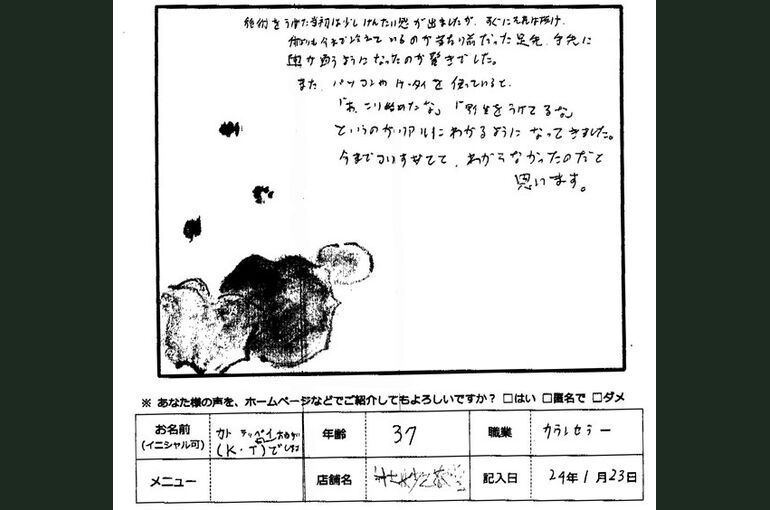 施術をうけた当初は少しけんたい感が出ましたが、すぐにそれは抜け、
何よりも今まで冷えているのが当たり前だった足先、手先に
血が通うようになったのが驚きでした。
また、パソコンやケータイを使っていると、
「あ、こり始めたな」「野生をうけてるな」
というのがリアルにわかるようになってきました。
今までコリすぎてて、わからなかったのだと
思います。
※ あなた様の声を、ホームページなどでご紹介してもよろしいですか？ □はい □匿名で □ダメ
お名前 (イニシャル可) カト テッペイ (K・T)でしね 年齢 37 職業 カウンセラー
メニュー 店舗名 記入日 24年1月23日